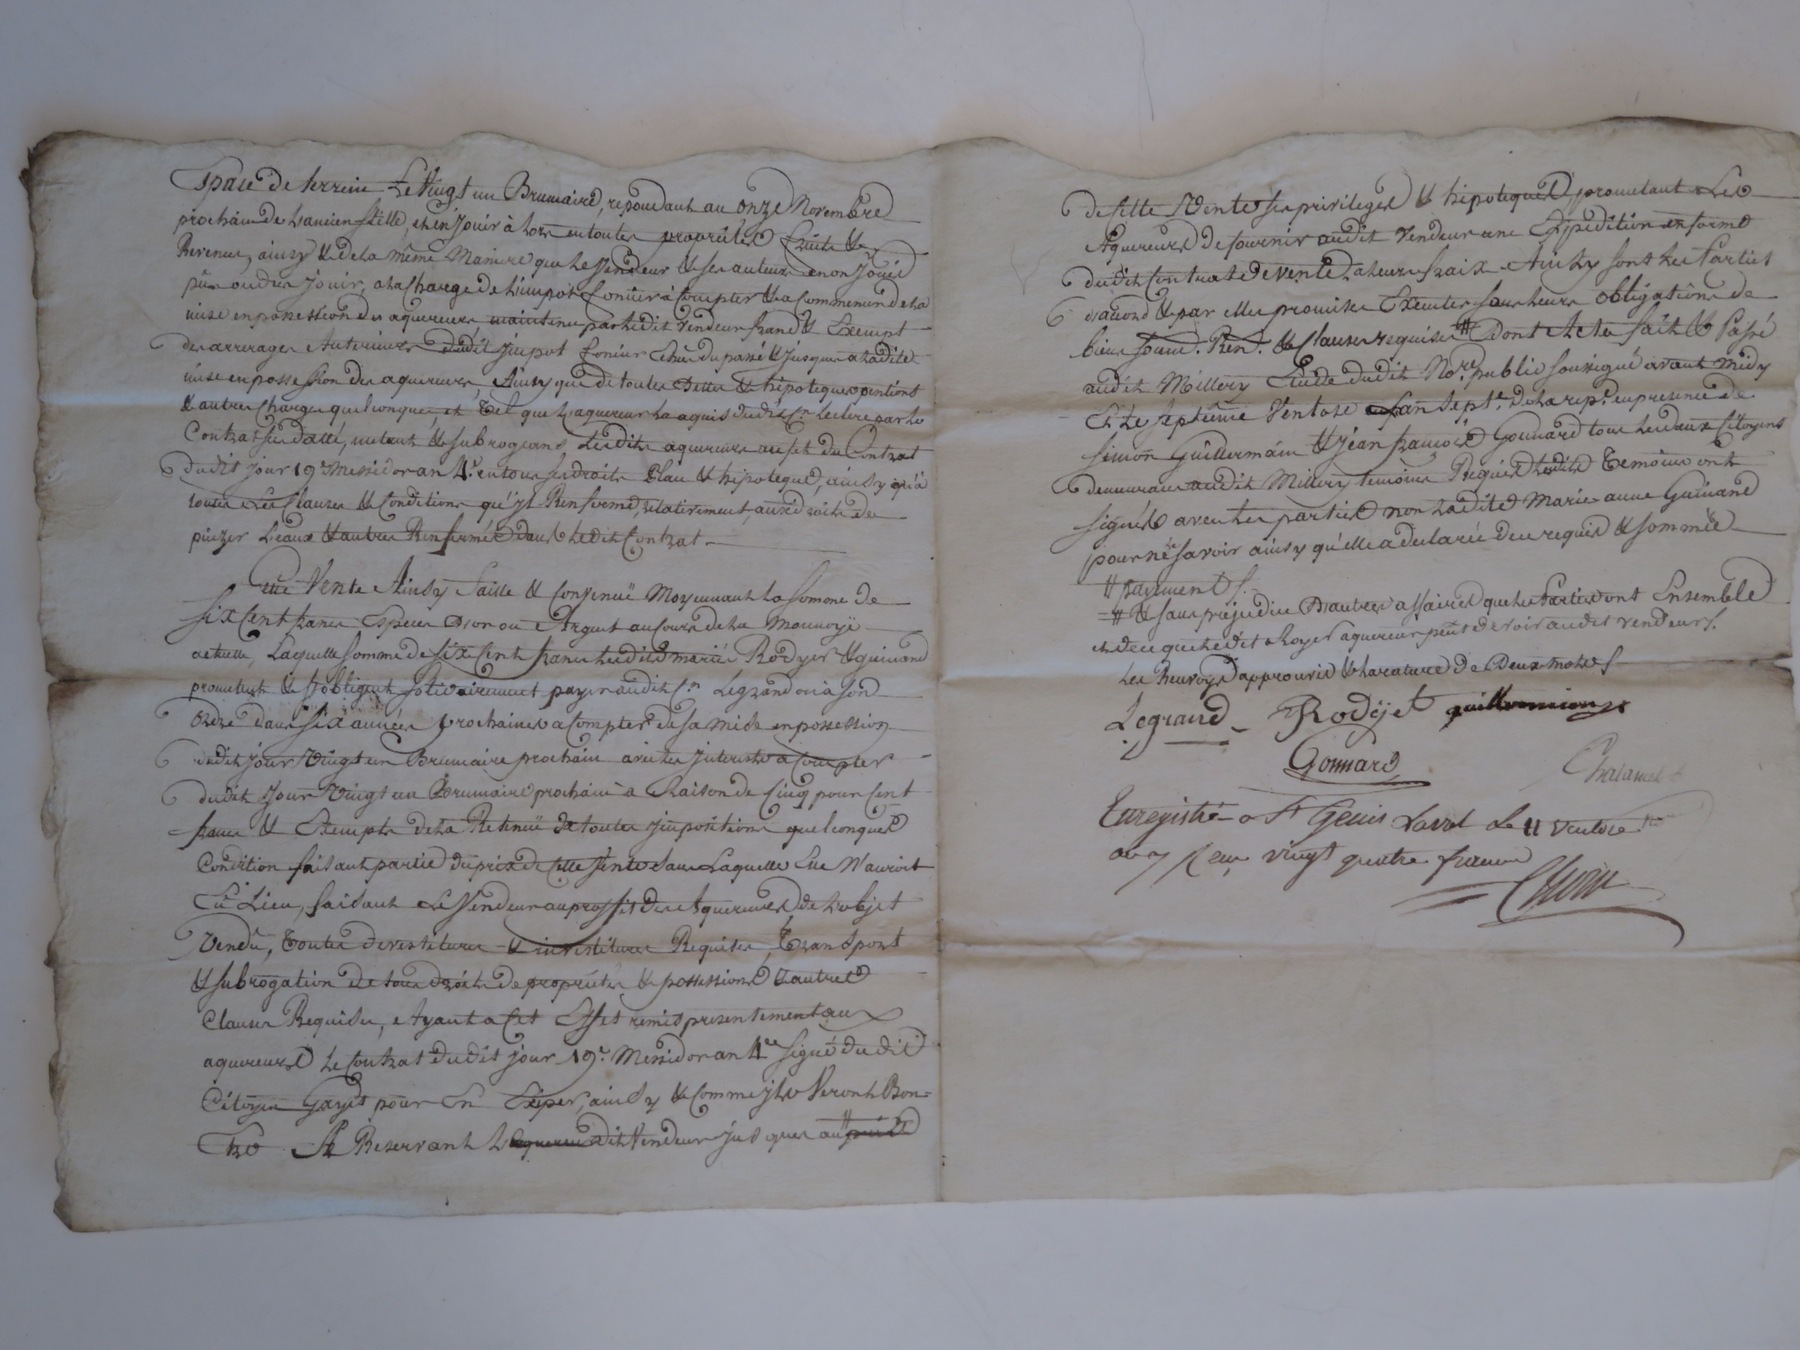 Space de terrein Le Vingt un Brumaire, repondant au onze Novembre
prochain de L'ancien stille, et en Jouir à Lors en toutes proprietes fruits &
Revenus, ainsy & de la même Maniere que Le Vendeur & ses auteurs en on Jouis
pûs ou dus Jouir, à la Charge de L'impot foncier à Compter & a Commencer de la
mise en possession des aquereurs, maintenus par Ledit Vendeur franc & Exempt
des arrerages Anterieurs dudit Jmpot foncier Echus du passé & Jusques a Ladite
mise en possession des aquereurs, Ainsy que de toutes Dettes & hipoteques pentions
& autres Charges quelconques, et Tel que Laquereur La aquis dudit Cn. Leclerc par Le
Contrat sus datté, mettant & subrogeant Lesdits aquereurs au fet du Contrat
dudit Jour 19e. Messidor an 4e. en tous ses droits Plau & hipoteque, ainsy qu'à
toutes Les Clauses & Conditions qu'jl Renferme, relativement, aux droits de
puizer L'eaux & autres Renfermés dans Ledit Contrat.
Cette Vente Ainsy Faitte & Convenuë Moyennant La Somme de
six Cent francs Especes D'or ou d'Argent au Cours de La Monnoye
actuelle, Laquelle somme de six Cent francs Lesdits mariés Rodyer & guinand
promettent & s'obligent solidairement payer audit Cn. Legrand ou à son
Ordre dans six années prochaines a Compter de sa mise en possession
dudit jour Vingt un Brumaire prochain avec Les Jnterests a Compter
dudit Jour Vingt un Brumaire prochain à Raison de Cinq pour Cent
francs & Exempts de La Retenuë de toutes Jmpositions quelconques
Condition faisant partie du prix de Cette Vente sans Laquelle Elle N'auroit
Eu Lieu, faisant Le Vendeur au proffit des Aquereurs de L'objet
Vendû, Toutes devestitures & investitures Requises, Transport
& subrogation de tous droits de propriétés & possessions & autres
Clauses Requises, et Ayant a Cet Effet remis presentement aux
aquereurs Le Contrat dudit jour 19e. Messidor an 4me signé dudit
Citoyen Gayet pour s'en Exiper, ainsy & Comme jls Veront Bon
Etre Se Reservant Ledit Vendeur jusques au #
de Cette Vente ses privileges & hipoteques promettant Les
Aquereurs de fournir audit Vendeur une Expedition en forme
dudit Contrat de vente a Leurs fraix. Ainsy sont Les Parties
d'accord & par elles promises Executer sous Leurs obligations de
biens soum. Ren. & Clauses requises # Dont Acte fait & Passé
audit Millery Etude dudit Nore. public soussigné avant midy
Et Le septieme Ventose L'an Sept. de La rep. en presence de
simon Guillermain & jean françois Gounard tous Les deux Citoyens
demeurans audit Millery temoins Requis Lesdits Temoins ont
signés avec Les parties non Ladite Marie anne Guinand
pour ne savoir ainsy qu'elle a declarée de ce requise & sommée
# payement /.
# & sans préjudice D'autres affaires que Les Parties ont Ensemble
et de ce que Ledit Royer aquereur peut devoir audit vendeur /.
Les Renvoys approuvés & La rature de Deux mots /.
Legrand Rodijet guillermain
Gonnard Chalamel
Enregistré a St Genis Laval Le 11 Ventose
an 7 Reçu vingt quatre francs